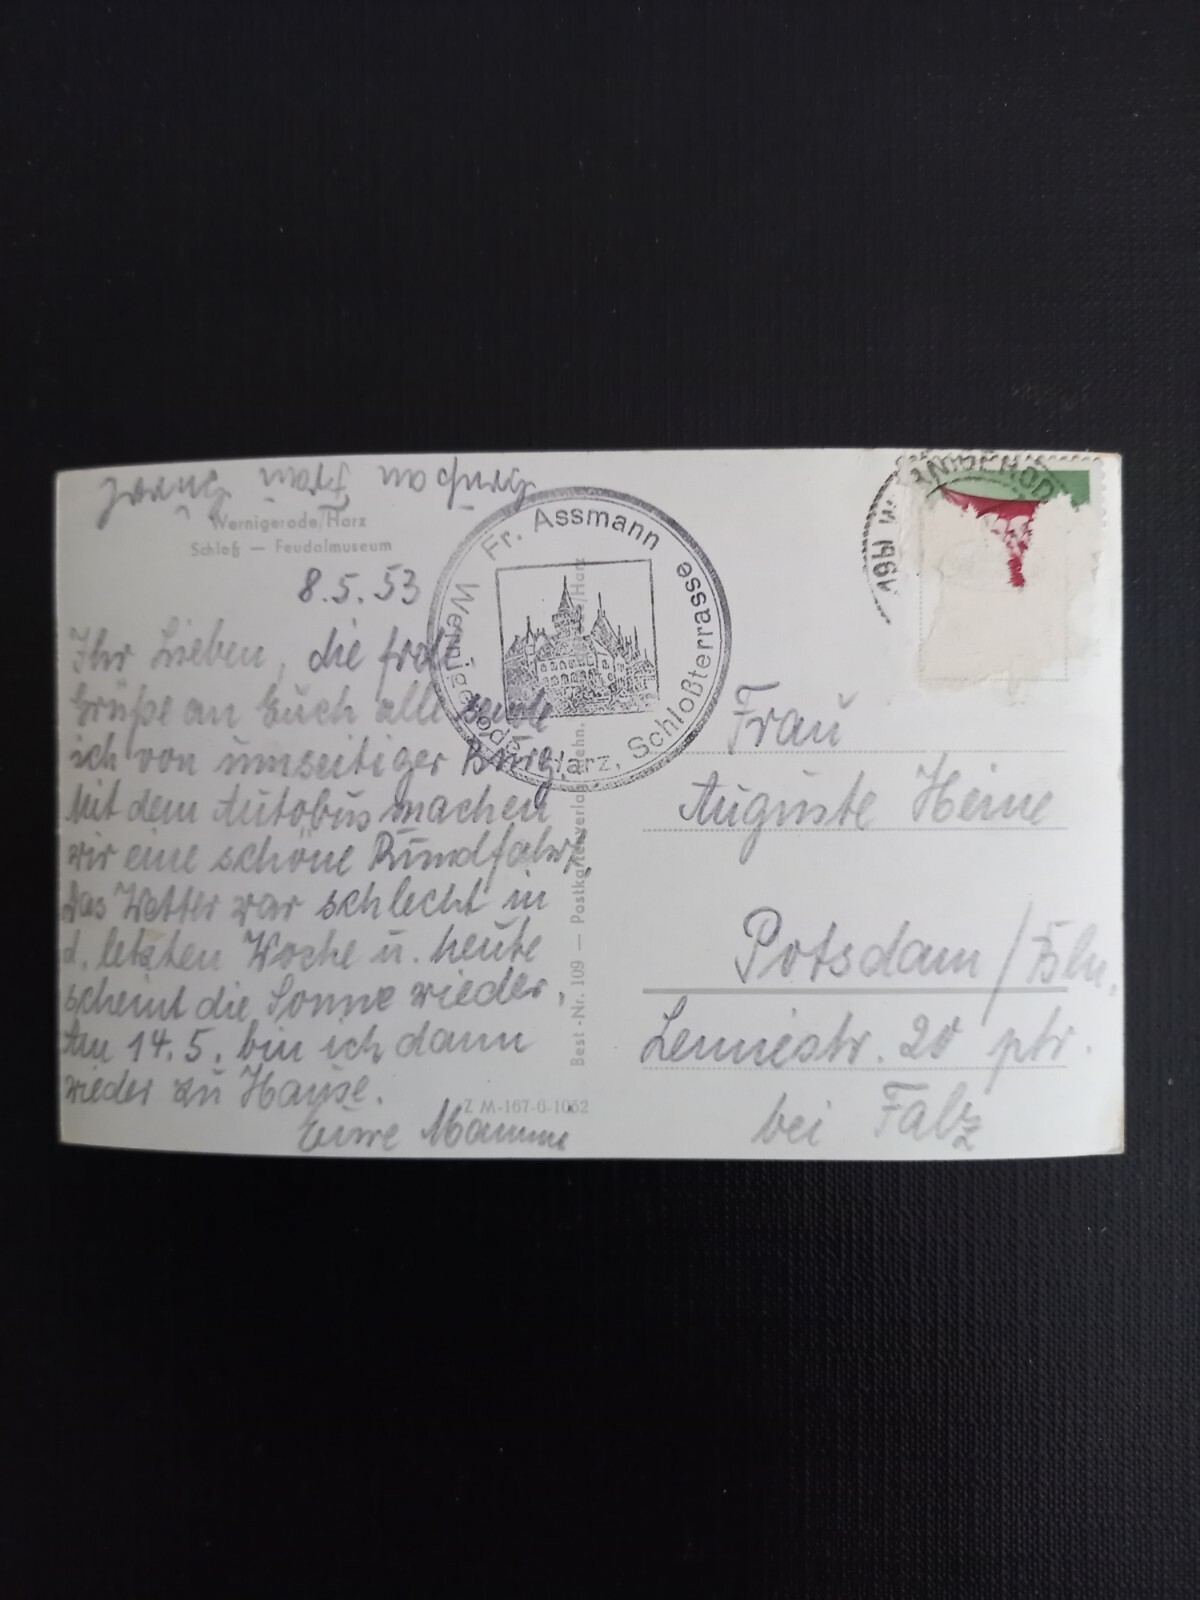 Wernigerode/Harz
Schloß — Feudalmuseum
8.5.53
Ihr Lieben, die frohe
Grüße an Euch alle sende
ich von umseitiger Burg.
Mit dem Autobus machen
wir eine schöne Rundfahrt.
Das Wetter war schlecht in
d. letzten Woche u. heute
scheint die Sonne wieder.
Am 14.5. bin ich dann
wieder zu Hause.
Eure Mamme
Gruß an Frau
Fr. Assmann
Wernigerode/Harz, Schloßterrasse
Best.-Nr. 109 — Postkartenverlag
Z M-167-6-1052
WERNIGEROD
Frau
Auguste Heine
Potsdam/Bln.
Lennéstr. 20 ptr.
bei Falz